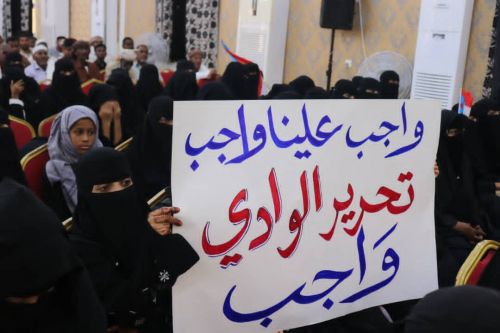 واجب علينا واجب
تحرير الوادي
وَاجب